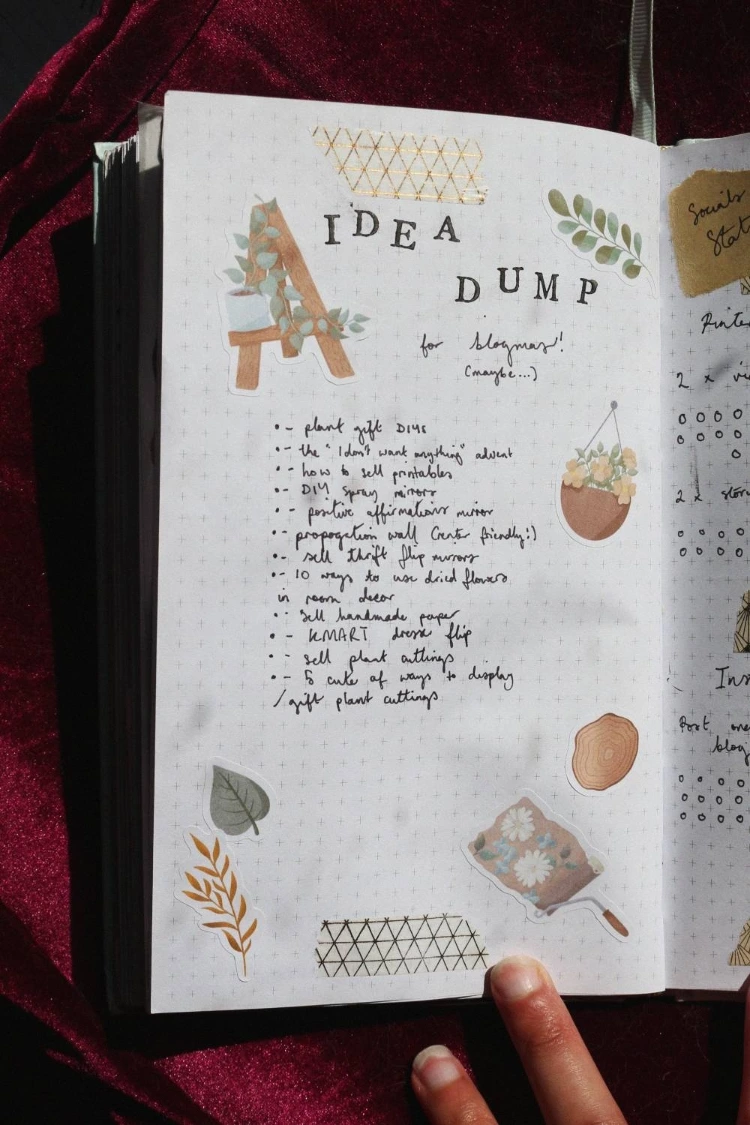 IDEA
DUMP
for blogmas!
(maybe...)
•- plant gift DIYs
•- the "I don't want anything" advent
•- how to sell printables
•- DIY spray mirrors
•- positive affirmations mirror
•- propogation wall (renter friendly!)
•- sell thrift flip mirrors
•- 10 ways to use dried flowers
in room decor
•- sell handmade paper
•- KMART dresse flip
•- sell plant cuttings
•- 5 cute af ways to display
/gift plant cuttings
Socials
Stat
Pinte
2 x vi
2 x stor
Ins
Post one
blog